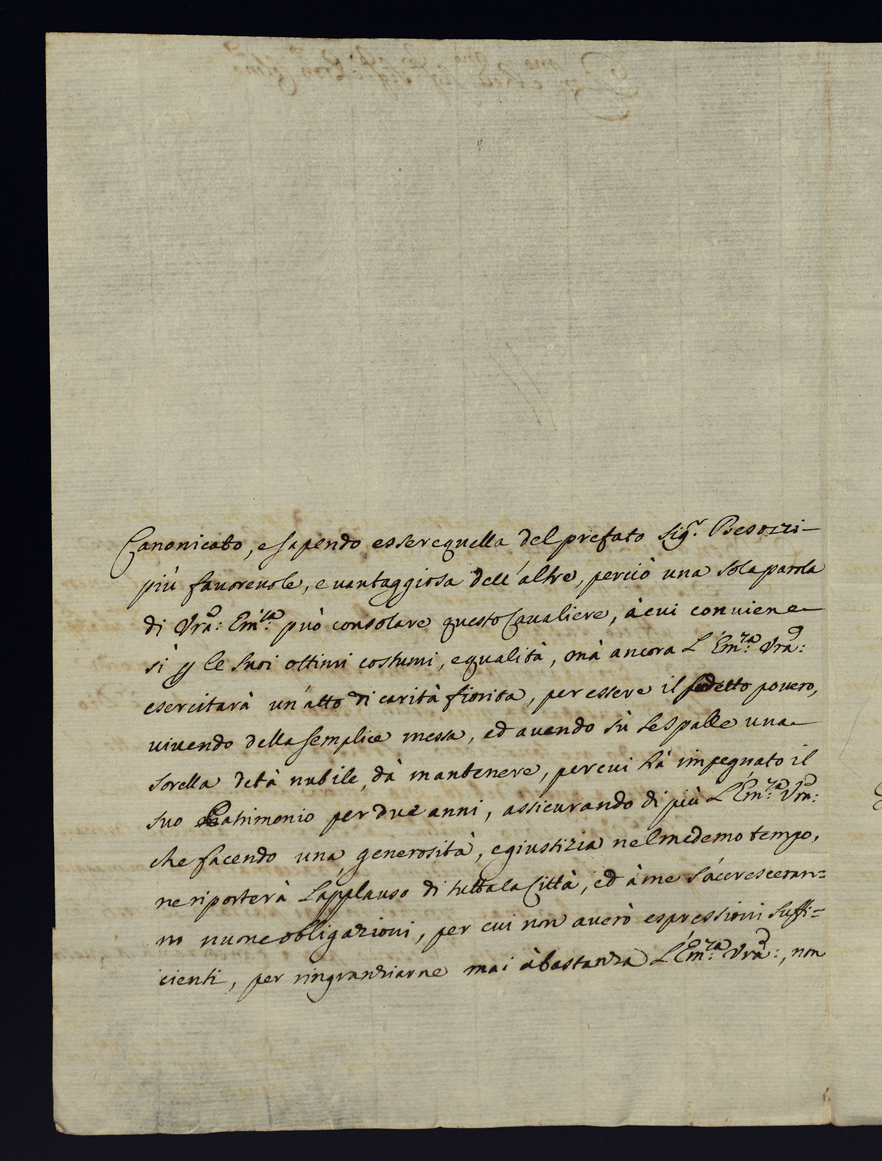 Canonicato, e sapendo essere quella del prefato Sig.r Besozzi
più favorevole, e vantaggiosa dell'altre, perciò una sola parola
di Vrã: Em:za può consolare questo Cavaliere, à cui conviene
sì p le suoi ottimi costumi, e qualità, mà ancora L'Em:za Vrã:
esercitarà un'atto di carità fiorita, per essere il sodetto povero,
vivendo della semplice messa, ed avendo sù le spalle una
sorella d'età nubile, dà mantenere, per cui hà impegnato il
suo Patrimonio per due anni, assicurando di più L'Em:za Vrã:
che facendo una generosità, e giustizia nel medemo tempo,
ne riporterà l'applauso di tutta la Città, ed à me s'accresceran=
no nuove obligazioni, per cui non averò espressioni suffi=
cienti, per ringranziarne mai àbastanza L'Em:za Vrã:, non